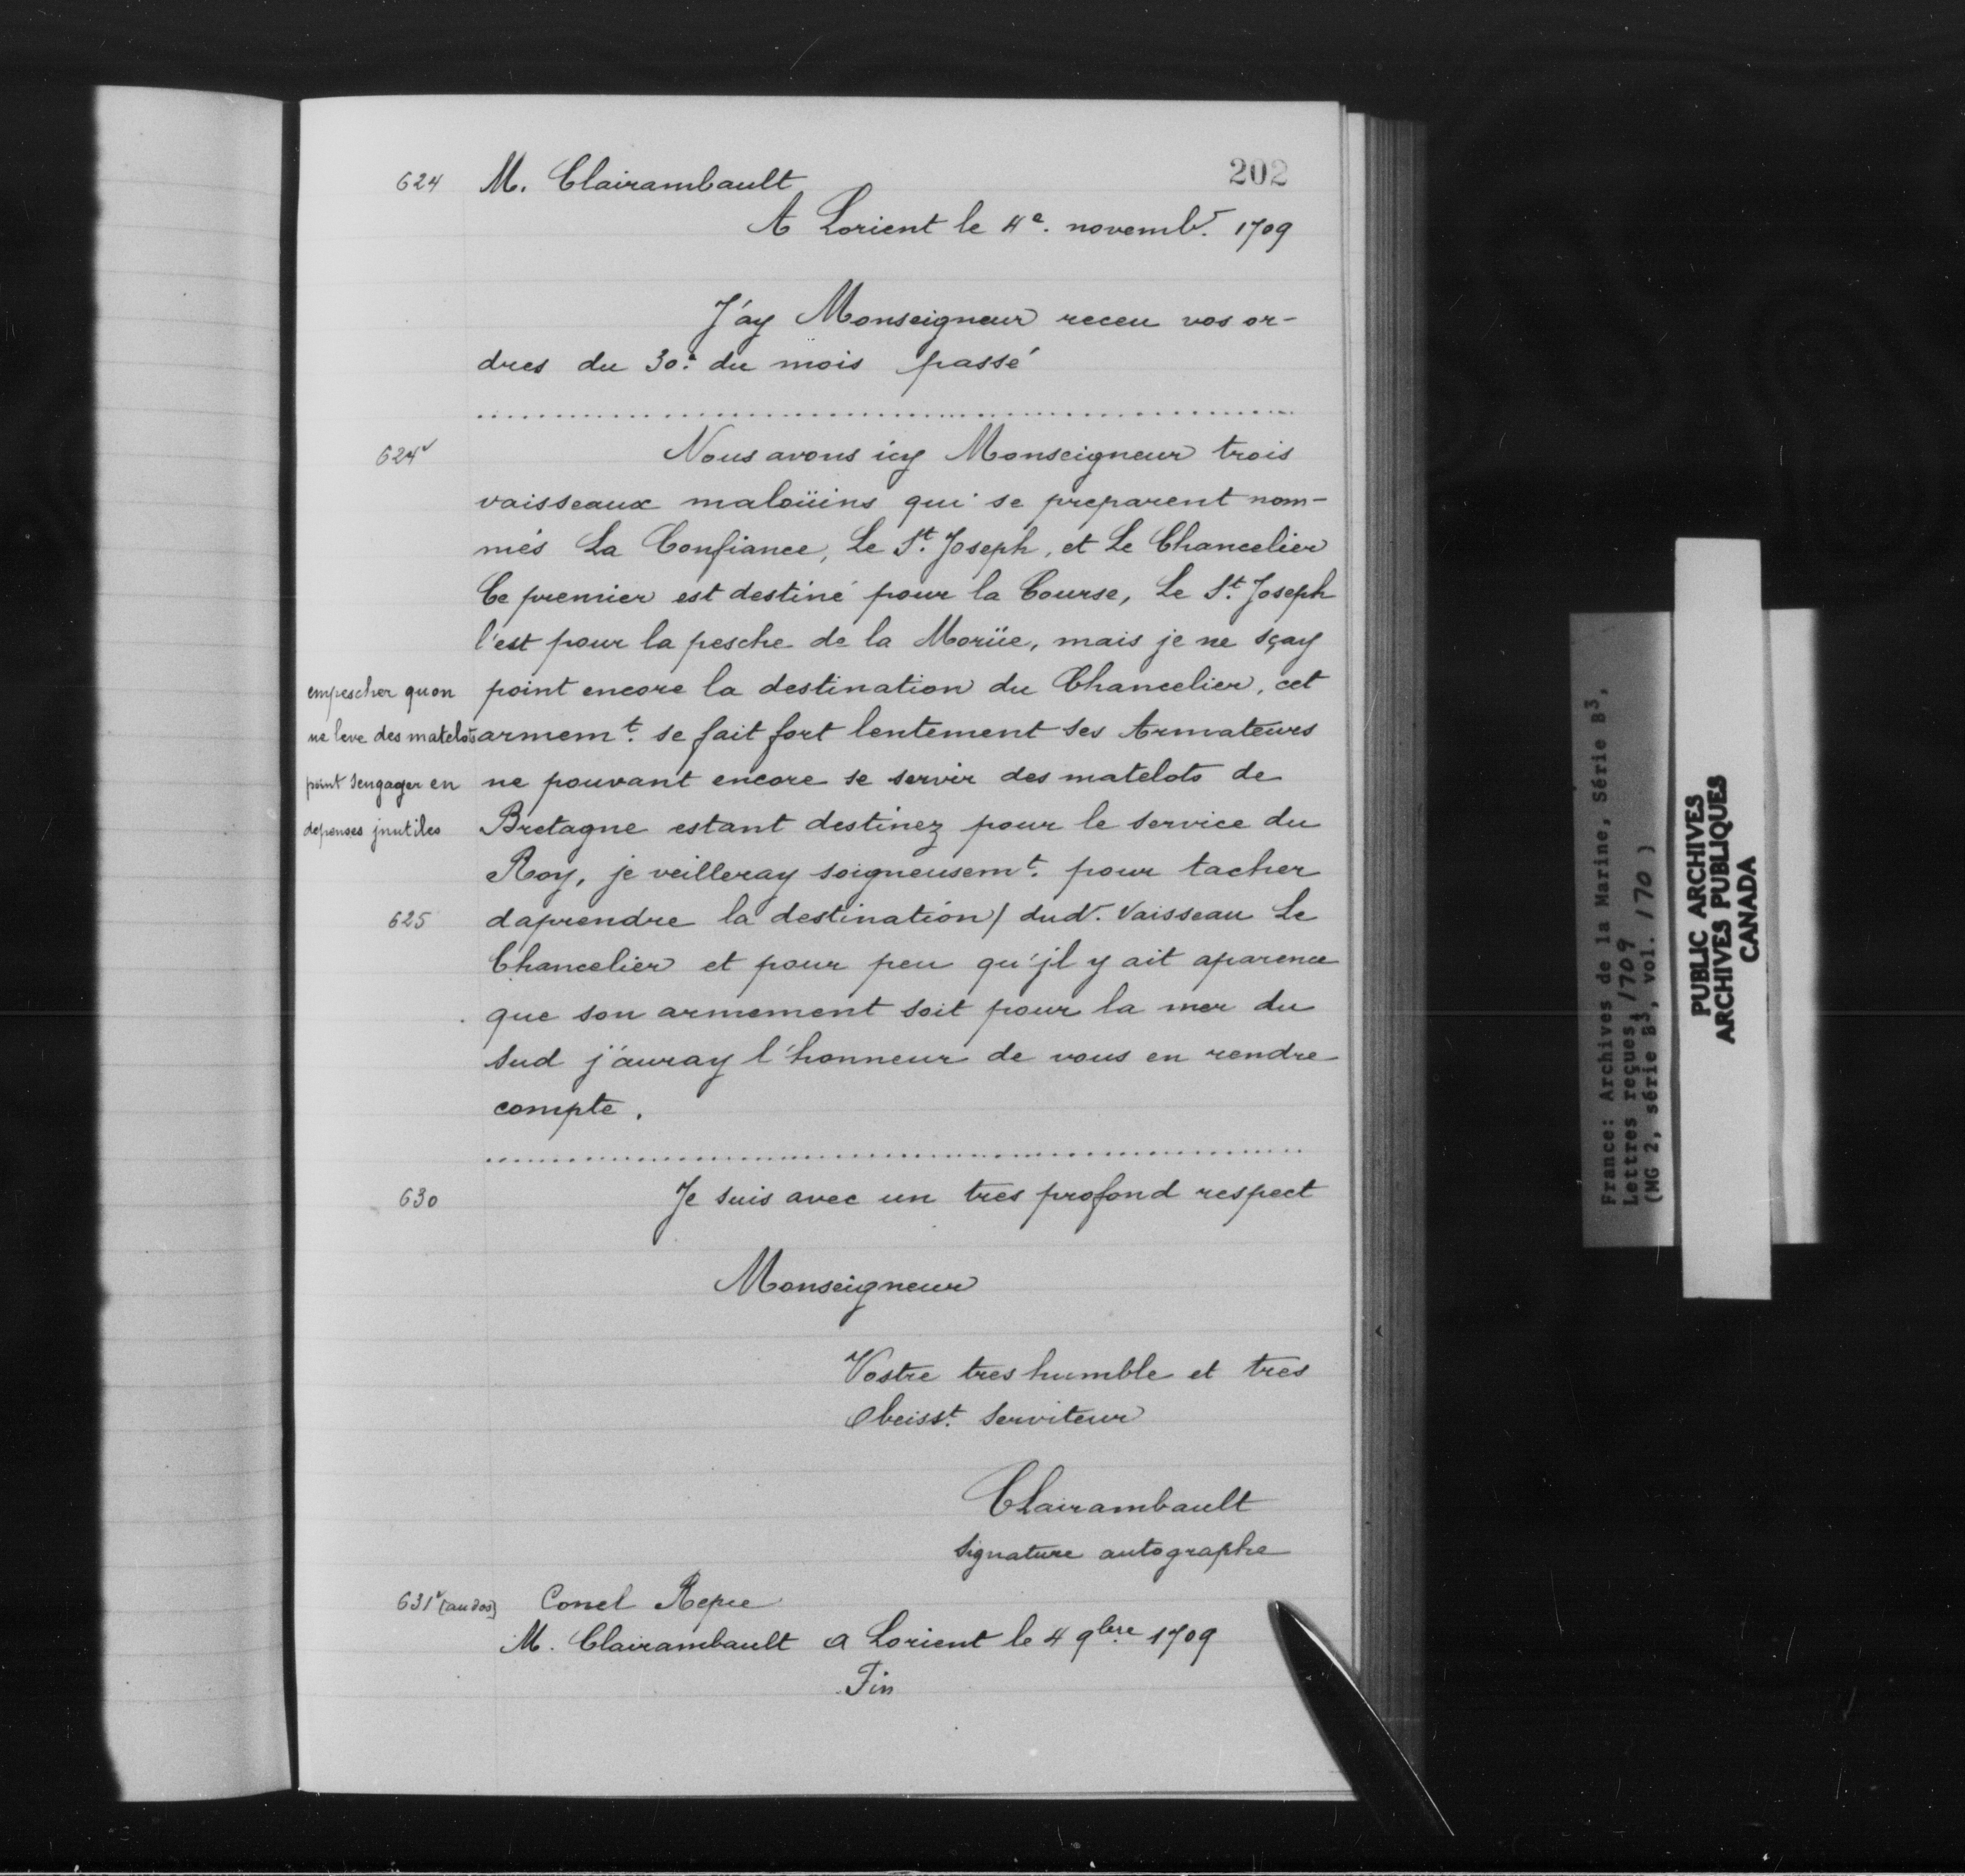 202
624 M. Clairambault
A Lorient le 4e. novembr. 1709
J'ay Monseigneur receu vos or-
dres du 30e. du mois passé
624v Nous avons icy Monseigneur trois
vaisseaux maloüins qui se preparent nom-
més La Confiance, Le St. Joseph, et Le Chancelier
Ce premier est destiné pour la Course, Le St. Joseph
l'est pour la pesche de la Morüe, mais je ne sçay
point encore la destination du Chancelier, cet
armemt. se fait fort lentement ses Armateurs
ne pouvant encore se servir des matelots de
Bretagne estant destinez pour le service du
Roy, je veilleray soigneusemt. pour tacher
625 daprendre la destination / dud. Vaisseau Le
Chancelier et pour peu qu'jl y ait aparence
que son armement soit pour la mer du
sud j'auray l'honneur de vous en rendre
compte.
empescher quon
ne leve des matelots
point sengager en
depenses jnutiles
630 Je suis avec un tres profond respect
Monseigneur
Vostre tres humble et tres
Obeisst. serviteur
Clairambault
signature autographe
631v (au dos) Conel Repre
M. Clairambault a Lorient le 4 9bre 1709
Fin
France: Archives de la Marine, Série B3,
Lettres reçues, 1709
(MG 2, série B3, vol. 170 )
PUBLIC ARCHIVES
ARCHIVES PUBLIQUES
CANADA